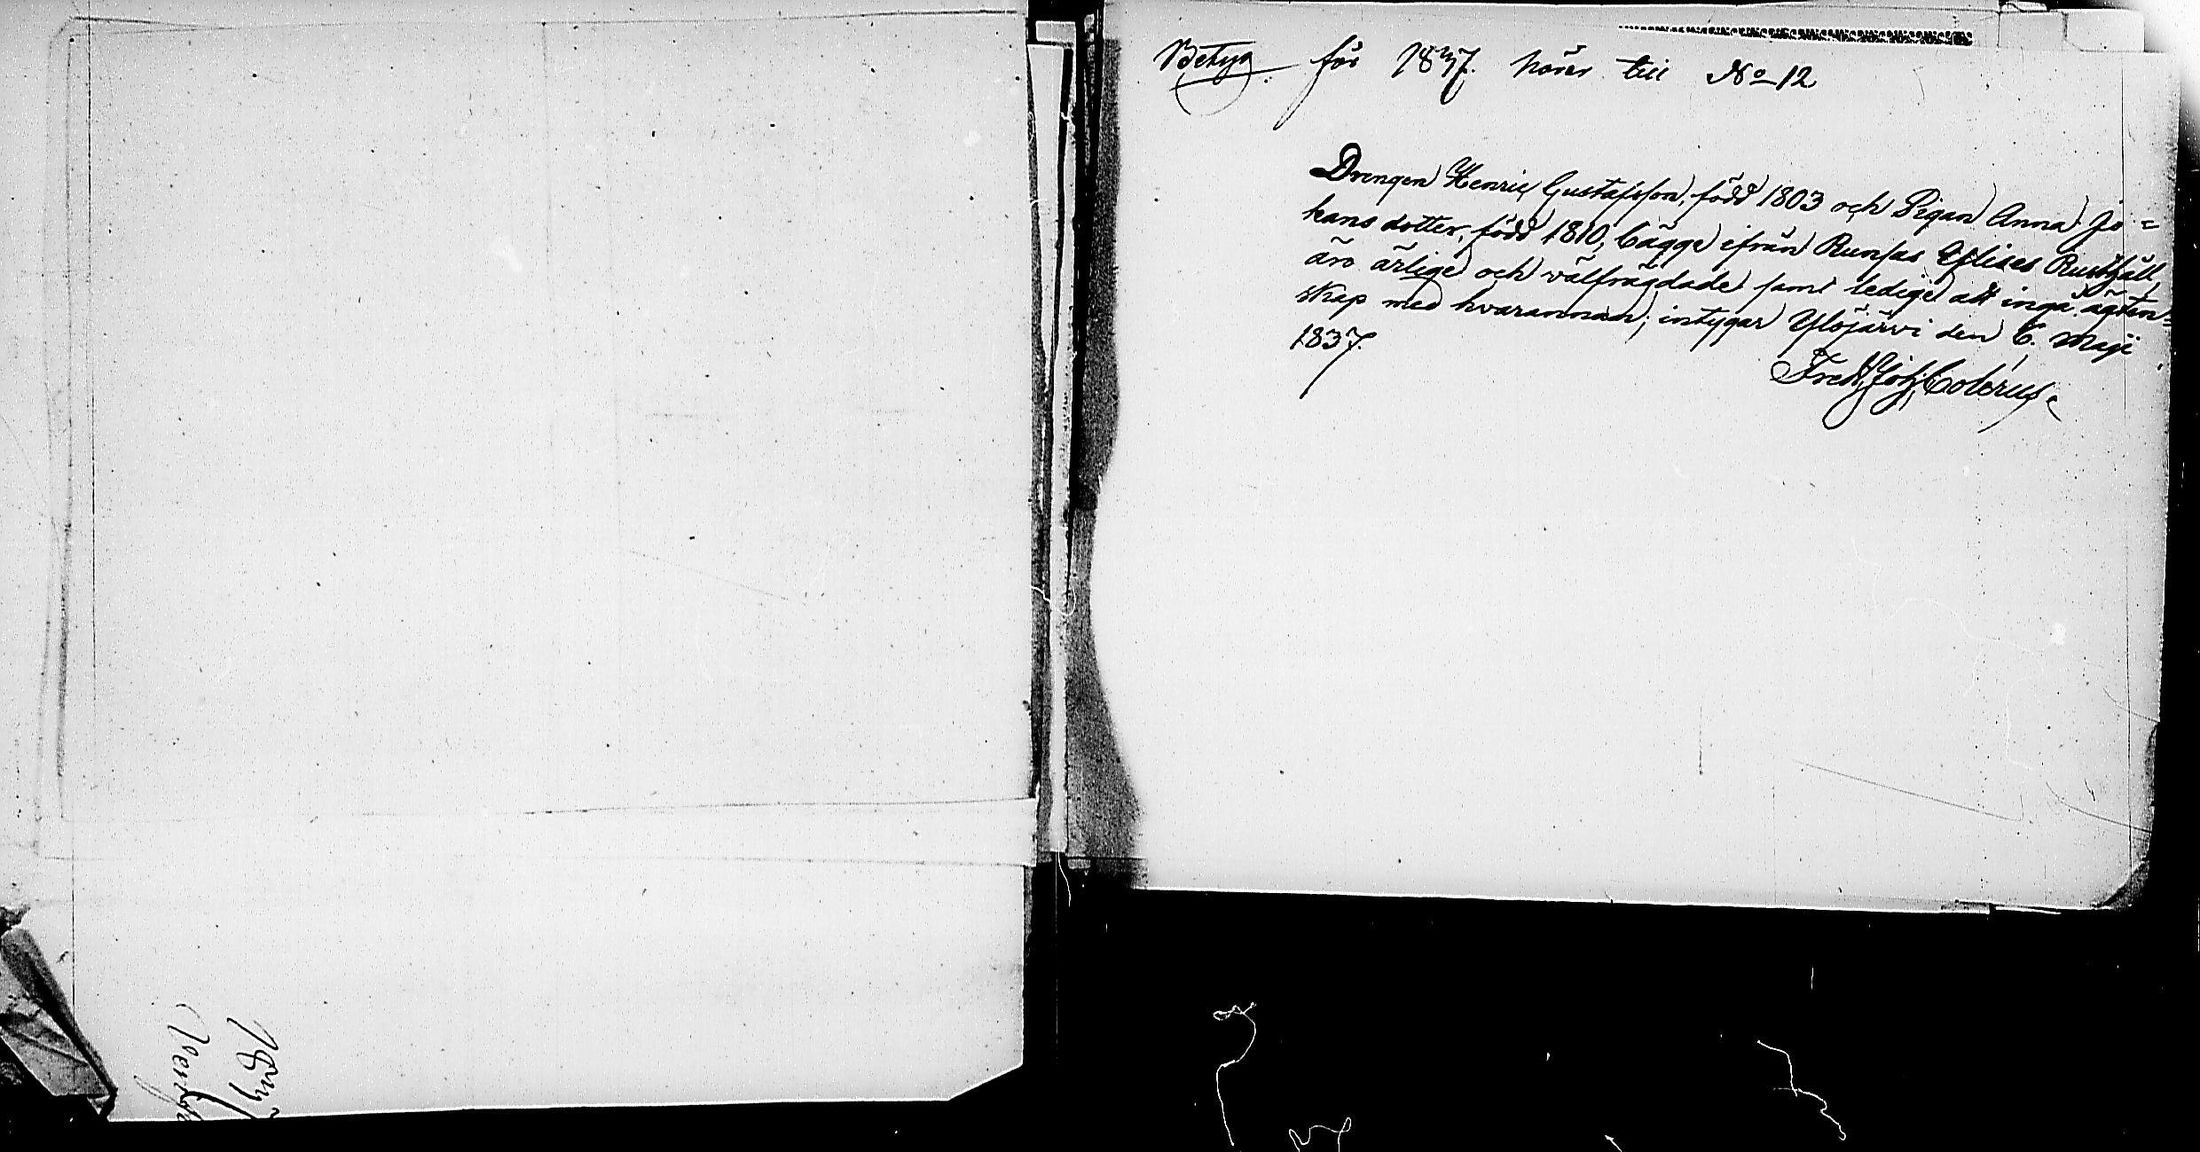 Betyg för 1837. hörer till No 12
Drengen Henric Gustafsson, född 1803 och Pigan Anna Jo=
hans dotter, född 1810, bägge ifrån Runsas Eflises Rusthåll,
äro ärlige och välfrägdade samt ledige att ingå ägten=
skap med hvarannan; intygar Ylöjärvi den 6. Maji
1837.
Fredr. Joh. Colérus.
1837